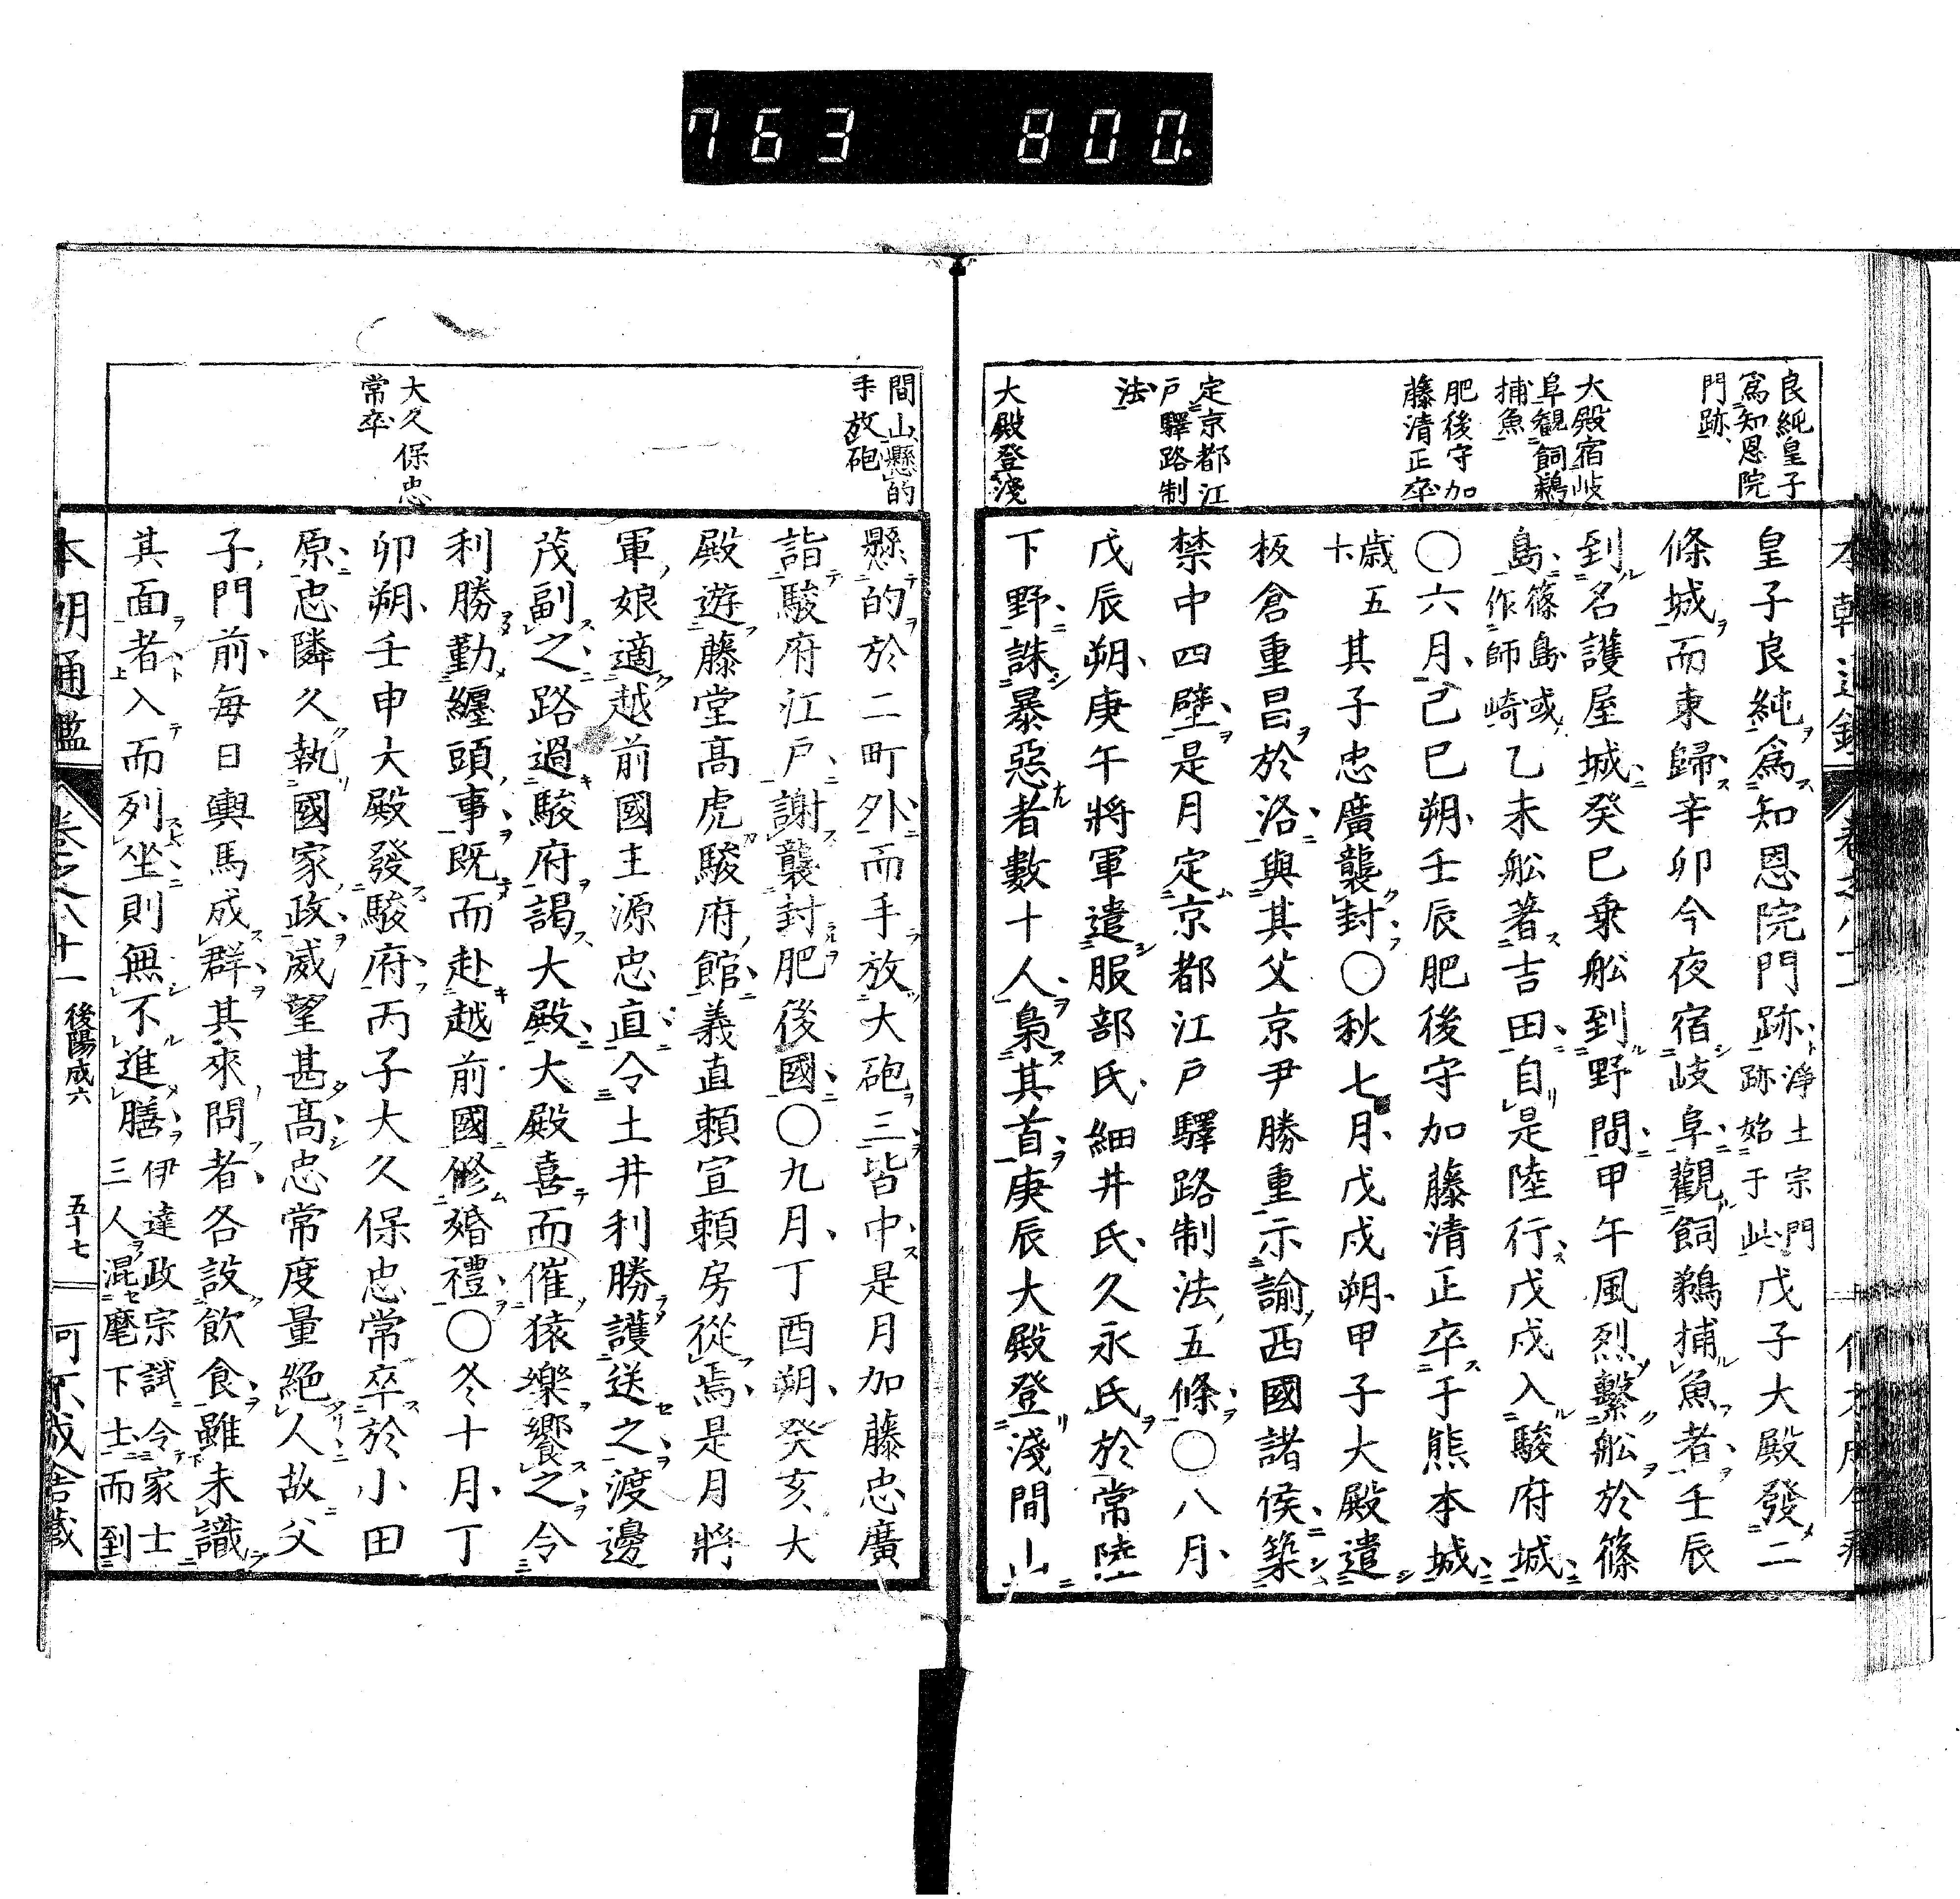 763 800.
良純皇子
爲知恩院
門跡
大殿宿岐
阜觀飼鵜
捕魚
肥後守加
藤清正卒
定京都江
戸驛路制
法
大殿登淺
皇子良純爲知恩院門跡淨土宗門跡始于此戊子大殿發二
條城而東歸辛卯今夜宿岐阜觀飼鵜捕魚者壬辰
到名護屋城癸巳乗舩到野間甲午風烈繫舩於篠
島篠島或作師崎乙未舩著吉田自是陸行戊戌入駿府城
〇六月己巳朔壬辰肥後守加藤清正卒于熊本城
歳五十其子忠廣襲封〇秋七月戊戌朔甲子大殿遣
板倉重昌於洛與其父京尹勝重示諭西國諸侯築
禁中四壁是月定京都江戸驛路制法五條〇八月
戊辰朔庚午將軍遣服部氏細井氏久永氏於常陸
下野誅暴惡者數十人梟其首庚辰大殿登淺間山
間山懸的
手放砲
大久保忠
常卒
懸的於二町外而手放大砲三皆中是月加藤忠廣
詣駿府江戸謝襲封肥後國〇九月丁酉朔癸亥大
殿遊藤堂高虎駿府館義直頼宣頼房從焉是月將
軍娘適越前國主源忠直令土井利勝護送之渡邊
茂副之路過駿府謁大殿大殿喜而催猿樂饗之令
利勝勤纏頭事既而赴越前國修婚禮〇冬十月丁
卯朔壬申大殿發駿府丙子大久保忠常卒於小田
原忠隣久執國家政威望甚髙忠常度量絶人故父
子門前毎日輿馬成群其來問者各設飲食雖未識
其面者入而列坐則無不進膳伊達政宗試令家士三人混麾下士而到
本朝通鑑 卷之八十一 後陽成六 五十七